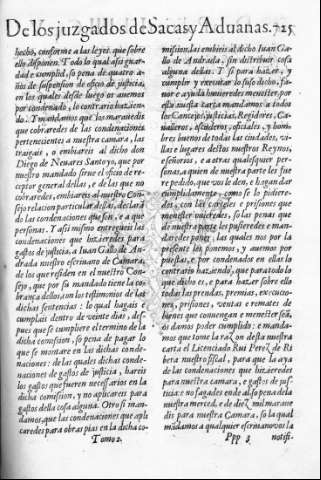 De los juzgados de Sacas y Aduanas. 725
hecho, conforme a las leyes que sobre
ello disponen. Todo lo qual assi guar-
dad e complid, so pena de quatro a-
ños de suspension de oficio de justicia,
en los quales desde luego os auemos
por condenado, lo contrario hazien-
do. Y mandamos que los marauedis
que cobraredes de las condenaciones
pertenecientes a nuestra camara, las
traigais, o embieis al dicho don
Diego de Neuares Santoyo, que por
nuestro mandado sirue el oficio de re-
ceptor general dellas, e de las que no
cobraredes, embiareis al nuestro Con-
sejo relacion particular dellas, declarā
do las condenaciones que son, e a que
personas. Y assi mismo entregueis las
condenaciones que hizieredes para
gastos de justicia, a Iuan Gallo de An-
drada nuestro escriuano de Camara,
de los que residen en el nuestro Con-
sejo, que por su mandado tiene la co-
brança dellos, con los testimonios de las
dichas sentencias: lo qual hagais e
cumplais dentro de veinte dias, des-
pues que se cumpliere el termino de la
dicha comission, so pena de pagar lo
que se montare en las dichas conde-
naciones: de las quales dichas conde-
naciones de gastos de justicia, hareis
los gastos que fueren necessarios en la
dicha comission, y no aplicareis para
gastos della cosa alguna. Otrosi man-
damos, que las condenaciones que apli
caredes para obras pias en la dicha co-
Tomo 2.
mission, las embieis al dicho Iuan Gal-
lo de Andrada, sin distribuir cosa
alguna dellas. Y si para hazer, y
cumplir y executar lo suso dicho, fa-
uor e ayuda huuieredes menester, por
esta nuestra carta mandamos a todos
los Concejos, justicias, Regidores, Ca-
ualleros, escuderos, oficiales, y hom-
bres buenos de todas las ciudades, vi-
llas e lugares destos nuestros Reynos,
e señorios, e a otras qualesquier per-
sonas, a quien de nuestra parte les fue
re pedido, que vos le den, e hagan dar
cumplidamente, como se lo pidiere-
des, con las carceles e prisiones que
menester ouieredes, so las penas que
de nuestra parte les pusieredes e man-
daredes poner, las quales nos por la
presente les ponemos, y auemos por
puestas, e por condenados en ellas lo
contrario haziendo, que para todo lo
que dicho es, e para hazer sobre ello
todas las prendas, premias, execucio-
nes, prisiones, ventas e remates de
bienes que conuengan e menester seā,
os damos poder cumplido: e manda-
mos que tome la razon desta nuestra
carta el Licenciado Rui Perez de Ri
bera nuestro fiscal, para que la aya
de las condenaciones que hizieredes
para nuestra camara, e gastos de jus-
ticia: e no fagades ende al so pena dela
nuestra merced, e de diez mil maraue
dis para nuestra Camara, so la qual
mādamos a qualquier escriuano vos la
Ppp 3 notifi-